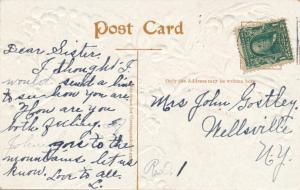 Post Card
Dear Sister.
I thought I
would send a line
to see how you are
How are you
both feeling.
goes to the
mountains let us
know. Love to all.
L.
Only the Address may be written here
Mrs John
Wellsville
N.Y.
1